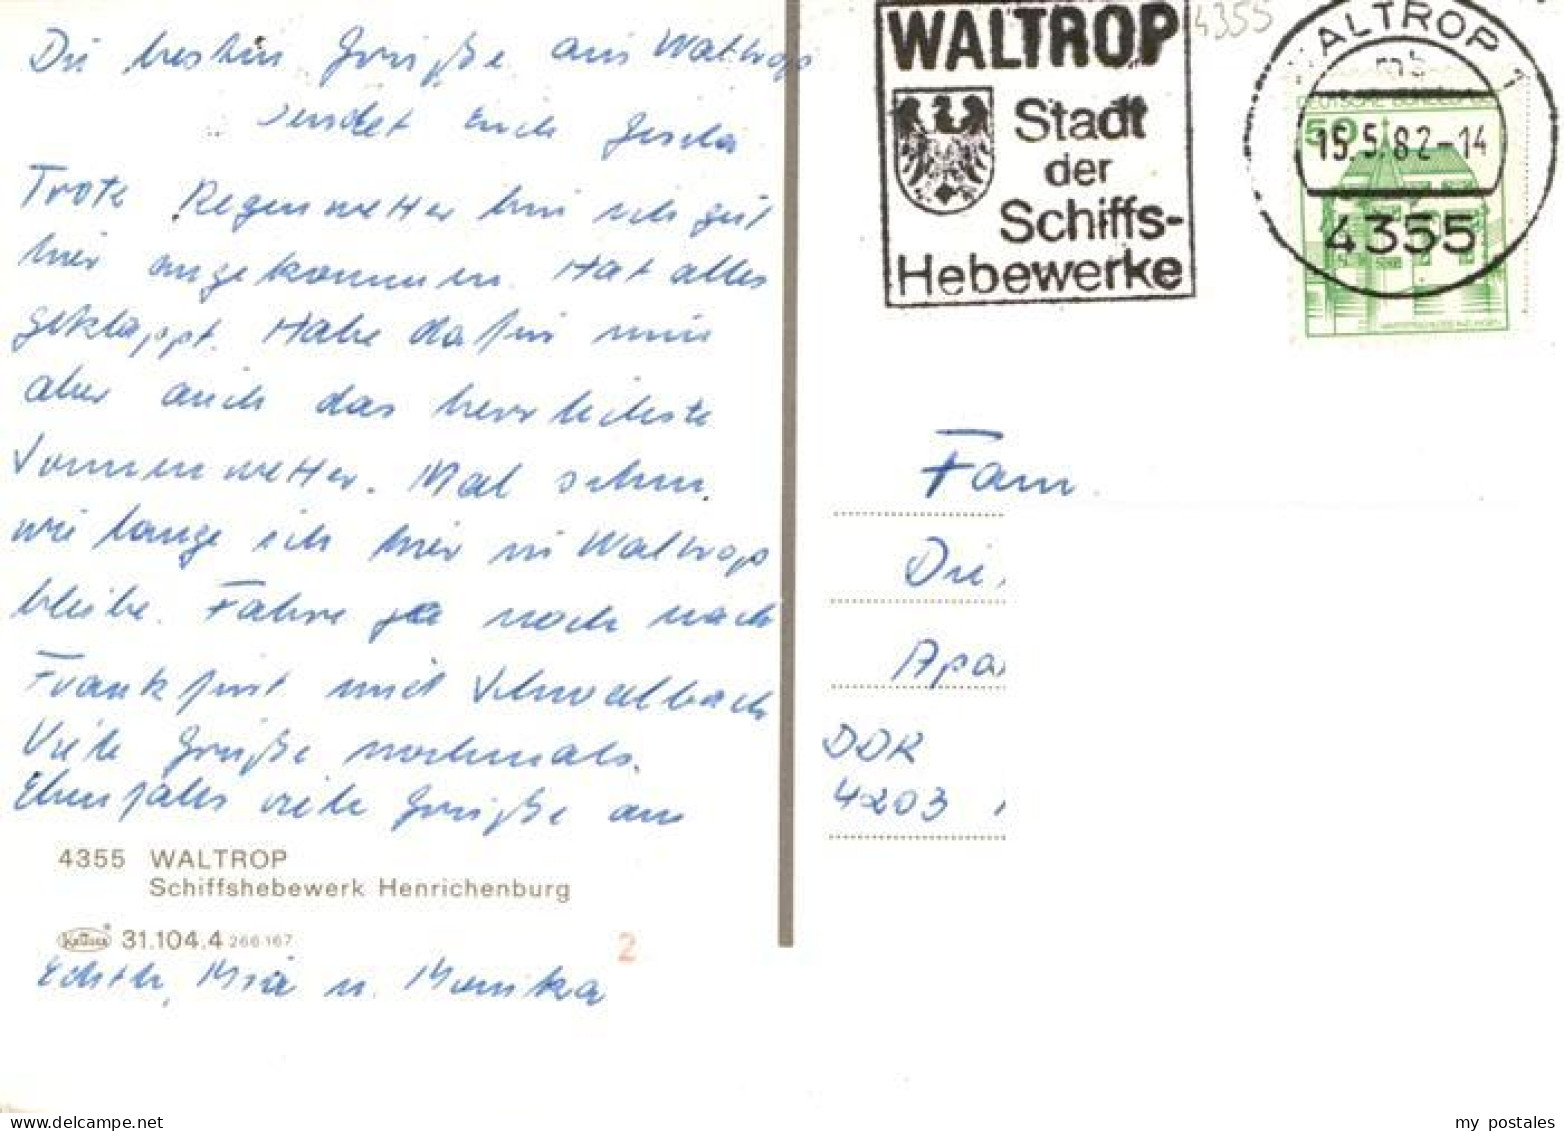 Die besten Grüße aus Waltrop
sendet Euch Gisela
Trotz Regenwetter bin ich gut
hier angekommen. Hat alles
geklappt. Habe dafür nun
aber auch das herrlichste
Sonnenwetter. Mal sehen,
wie lange ich hier in Waltrop
bleibe. Fahre ja noch nach
Frankfurt und Schwalbach
Viele Grüße nochmals.
Ebenfalls viele Grüße am
4355 WALTROP
Schiffshebewerk Henrichenburg
Krüger 31.104.4 266.167
2
Edith, Mia u. Monika
WALTROP
Stadt
der
Schiffs-
Hebewerke
4355
WALTROP 1
mb
15.5.82-14
4355
DEUTSCHE BUNDESPOST
50
Fam
Die
Apo
DDR
4203
my postales